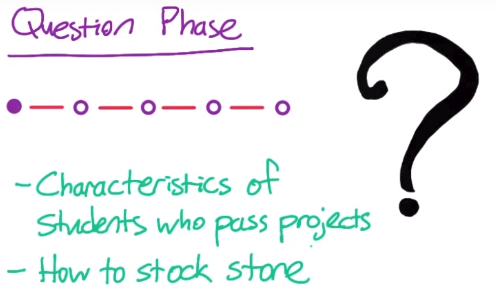 Question Phase
- Characteristics of
students who pass projects
- How to stock store
?